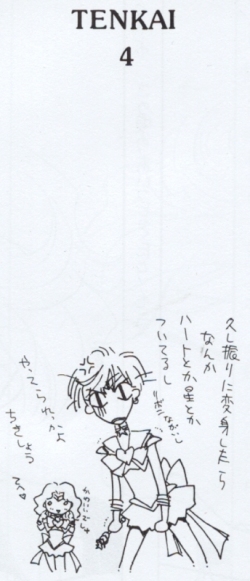 TENKAI
4
久し振りに変身したら
なんか
ハートとか星とか
ついてるし
リボンながいし
や、てられ、かよ
ちきしょう